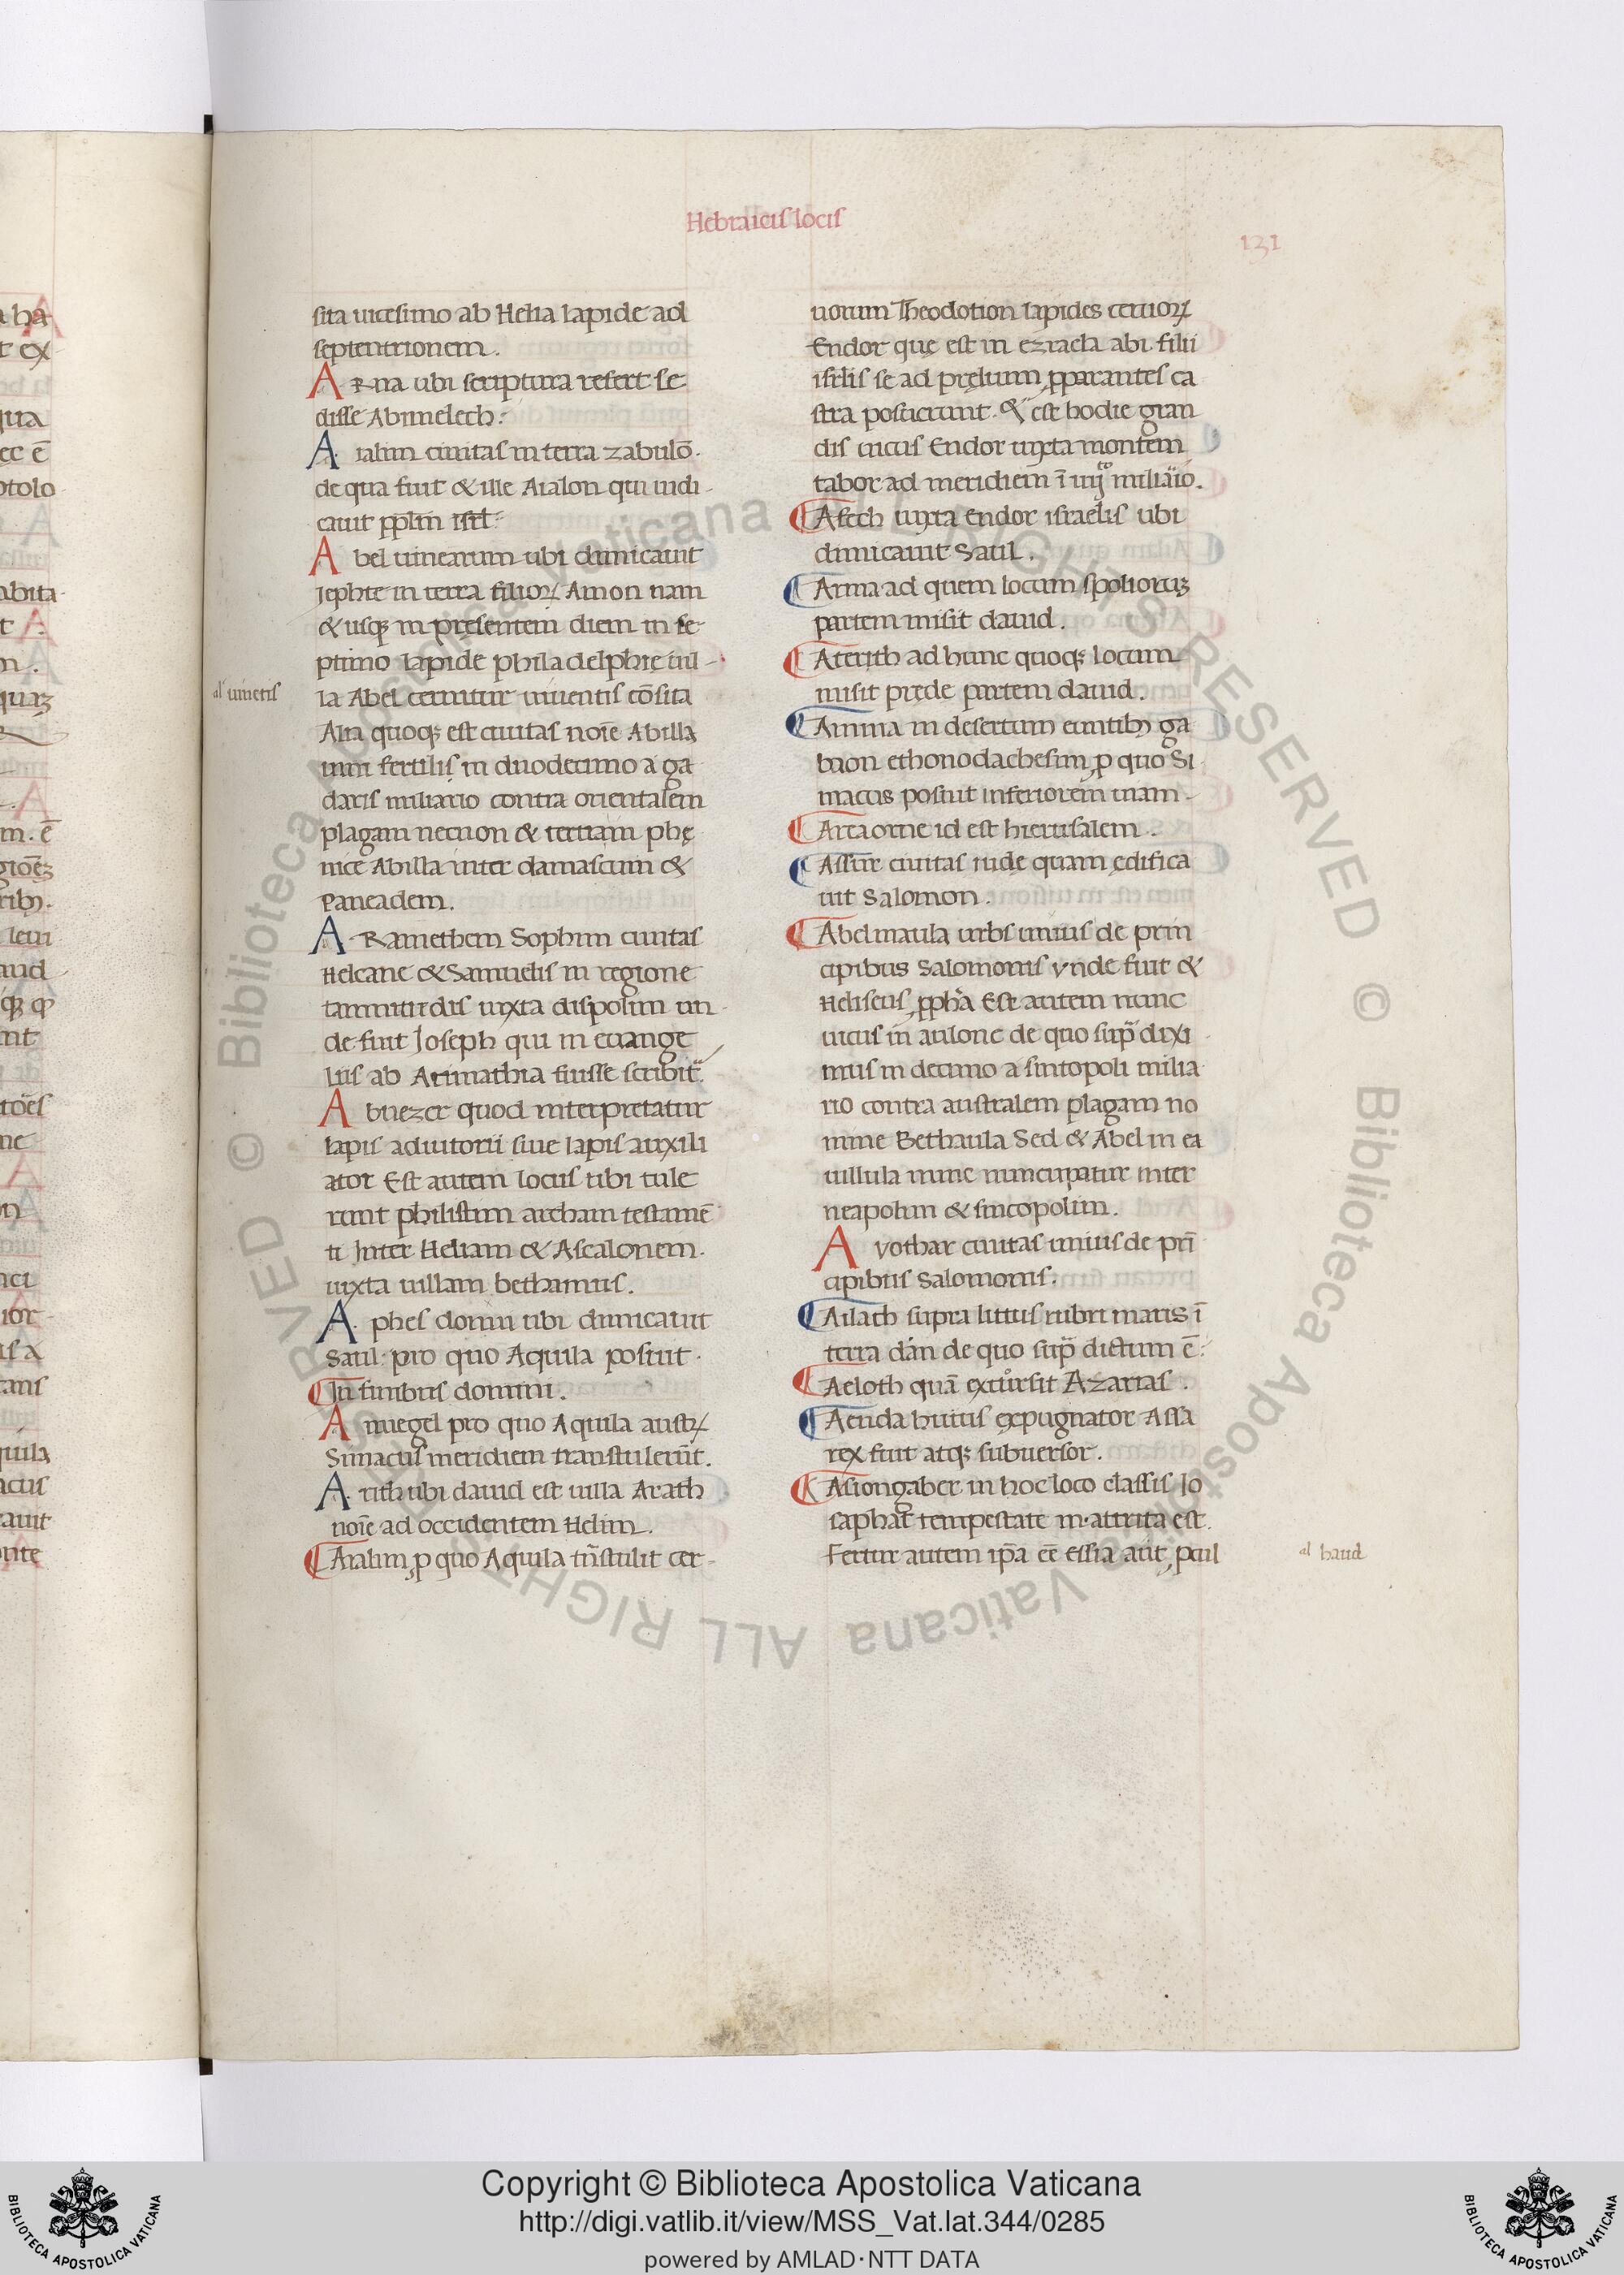 Hebraicis locis
131
sita uicesimo ab Helia lapide ad
septentrionem.
A Rna ubi scriptura refert se
disse Abimelech:
A ialim ciuitas in terra zabulō.
de qua fuit & ille Aialon qui iudi
cauit pplm isrl:
A bel uinearum ubi dimicauit
Jephte in terra filioꝝ Amon nam
& usqꝫ in pręsentem diem in se
ptimo lapide philadelphię uil
al' uinetis
la Abel cernitur uiuentis cōsita
Alia quoqꝫ est ciuitas noīe Abilla
uini fertilis in duodecimo a ga
daris miliario contra orientalem
plagam necnon & tertiam phę
nice Abilla inter damascum &
Paneadem.
A Ramethem Sophim ciuitas
Helcane & Samuelis in regione
tamnitidis iuxta dispolim un
de fuit Joseph qui in euange
liis ab Arimathia fuisse scribit̃.
A bnezer quod interpretatur
lapis adiutorii siue lapis auxili
ator Est autem locus ubi tule
runt philistiim archam testamē
ti Inter Heliam & Ascalonem.
iuxta uillam bethamus.
A phes domi ubi dimicauit
Saul. pro quo Aquila posuit.
In finibus domini.
A nuegel pro quo Aquila austꝝ
Simacus meridiem transtulerūt.
A rith ubi dauid est uilla Arath
noīe ad occidentem Helim.
Aialim, p quo Aquila trāstulit cer
uorum Theodotion lapides ceruoꝝ
Endor que est in ezraela abi filii
isrlis se ad pręlium, pparantes ca
stra posuerunt. & est hodie gran
dis uicus Endor iuxta montem
tabor ad meridiem ī iiijto miliaio.
Afech iuxta Endor israelis ubi
dimicauit Saul.
Arma ad quem locum spoliorūꝫ
partem misit dauid.
Aterith ad hunc quoqꝫ locum
misit prędę partem dauid.
Amma in desertum euntibꝫ ga
baon ethonodachesim, p quo Si
macus posuit inferiorem uiam.
Areaorne id est hierusalem.
Assur ciuitas iudę quam edifica
uit Salomon.
Abelmaula urbs unius de prin
cipibus Salomonis vnde fuit &
Heliseus, ppha Est autem nunc
uicus in aulone de quo sup̃ dixi
mus in decimo a sintopoli milia
rio contra australem plagam no
mine Bethaula Sed & Abel in ea
uillula nunc nuncupatur inter
neapolim & sintopolim.
A vothar ciuitas unius de prī
cipibus Salomonis.
Ailath supra littus rubri maris ī
terra dan de quo sup̃ dictum ē.
Aeloth quā excursit Azarias.
Aenda huius expugnator Assa
rex fuit atqꝫ subuersor.
Asiongaber in hoc loco classis Io
saphat tempestate in attrita est.
Fertur autem ip̄a eē Essia aut, pcul
al' haud
Copyright © Biblioteca Apostolica Vaticana
http://digi.vatlib.it/view/MSS_Vat.lat.344/0285
powered by AMLAD·NTT DATA